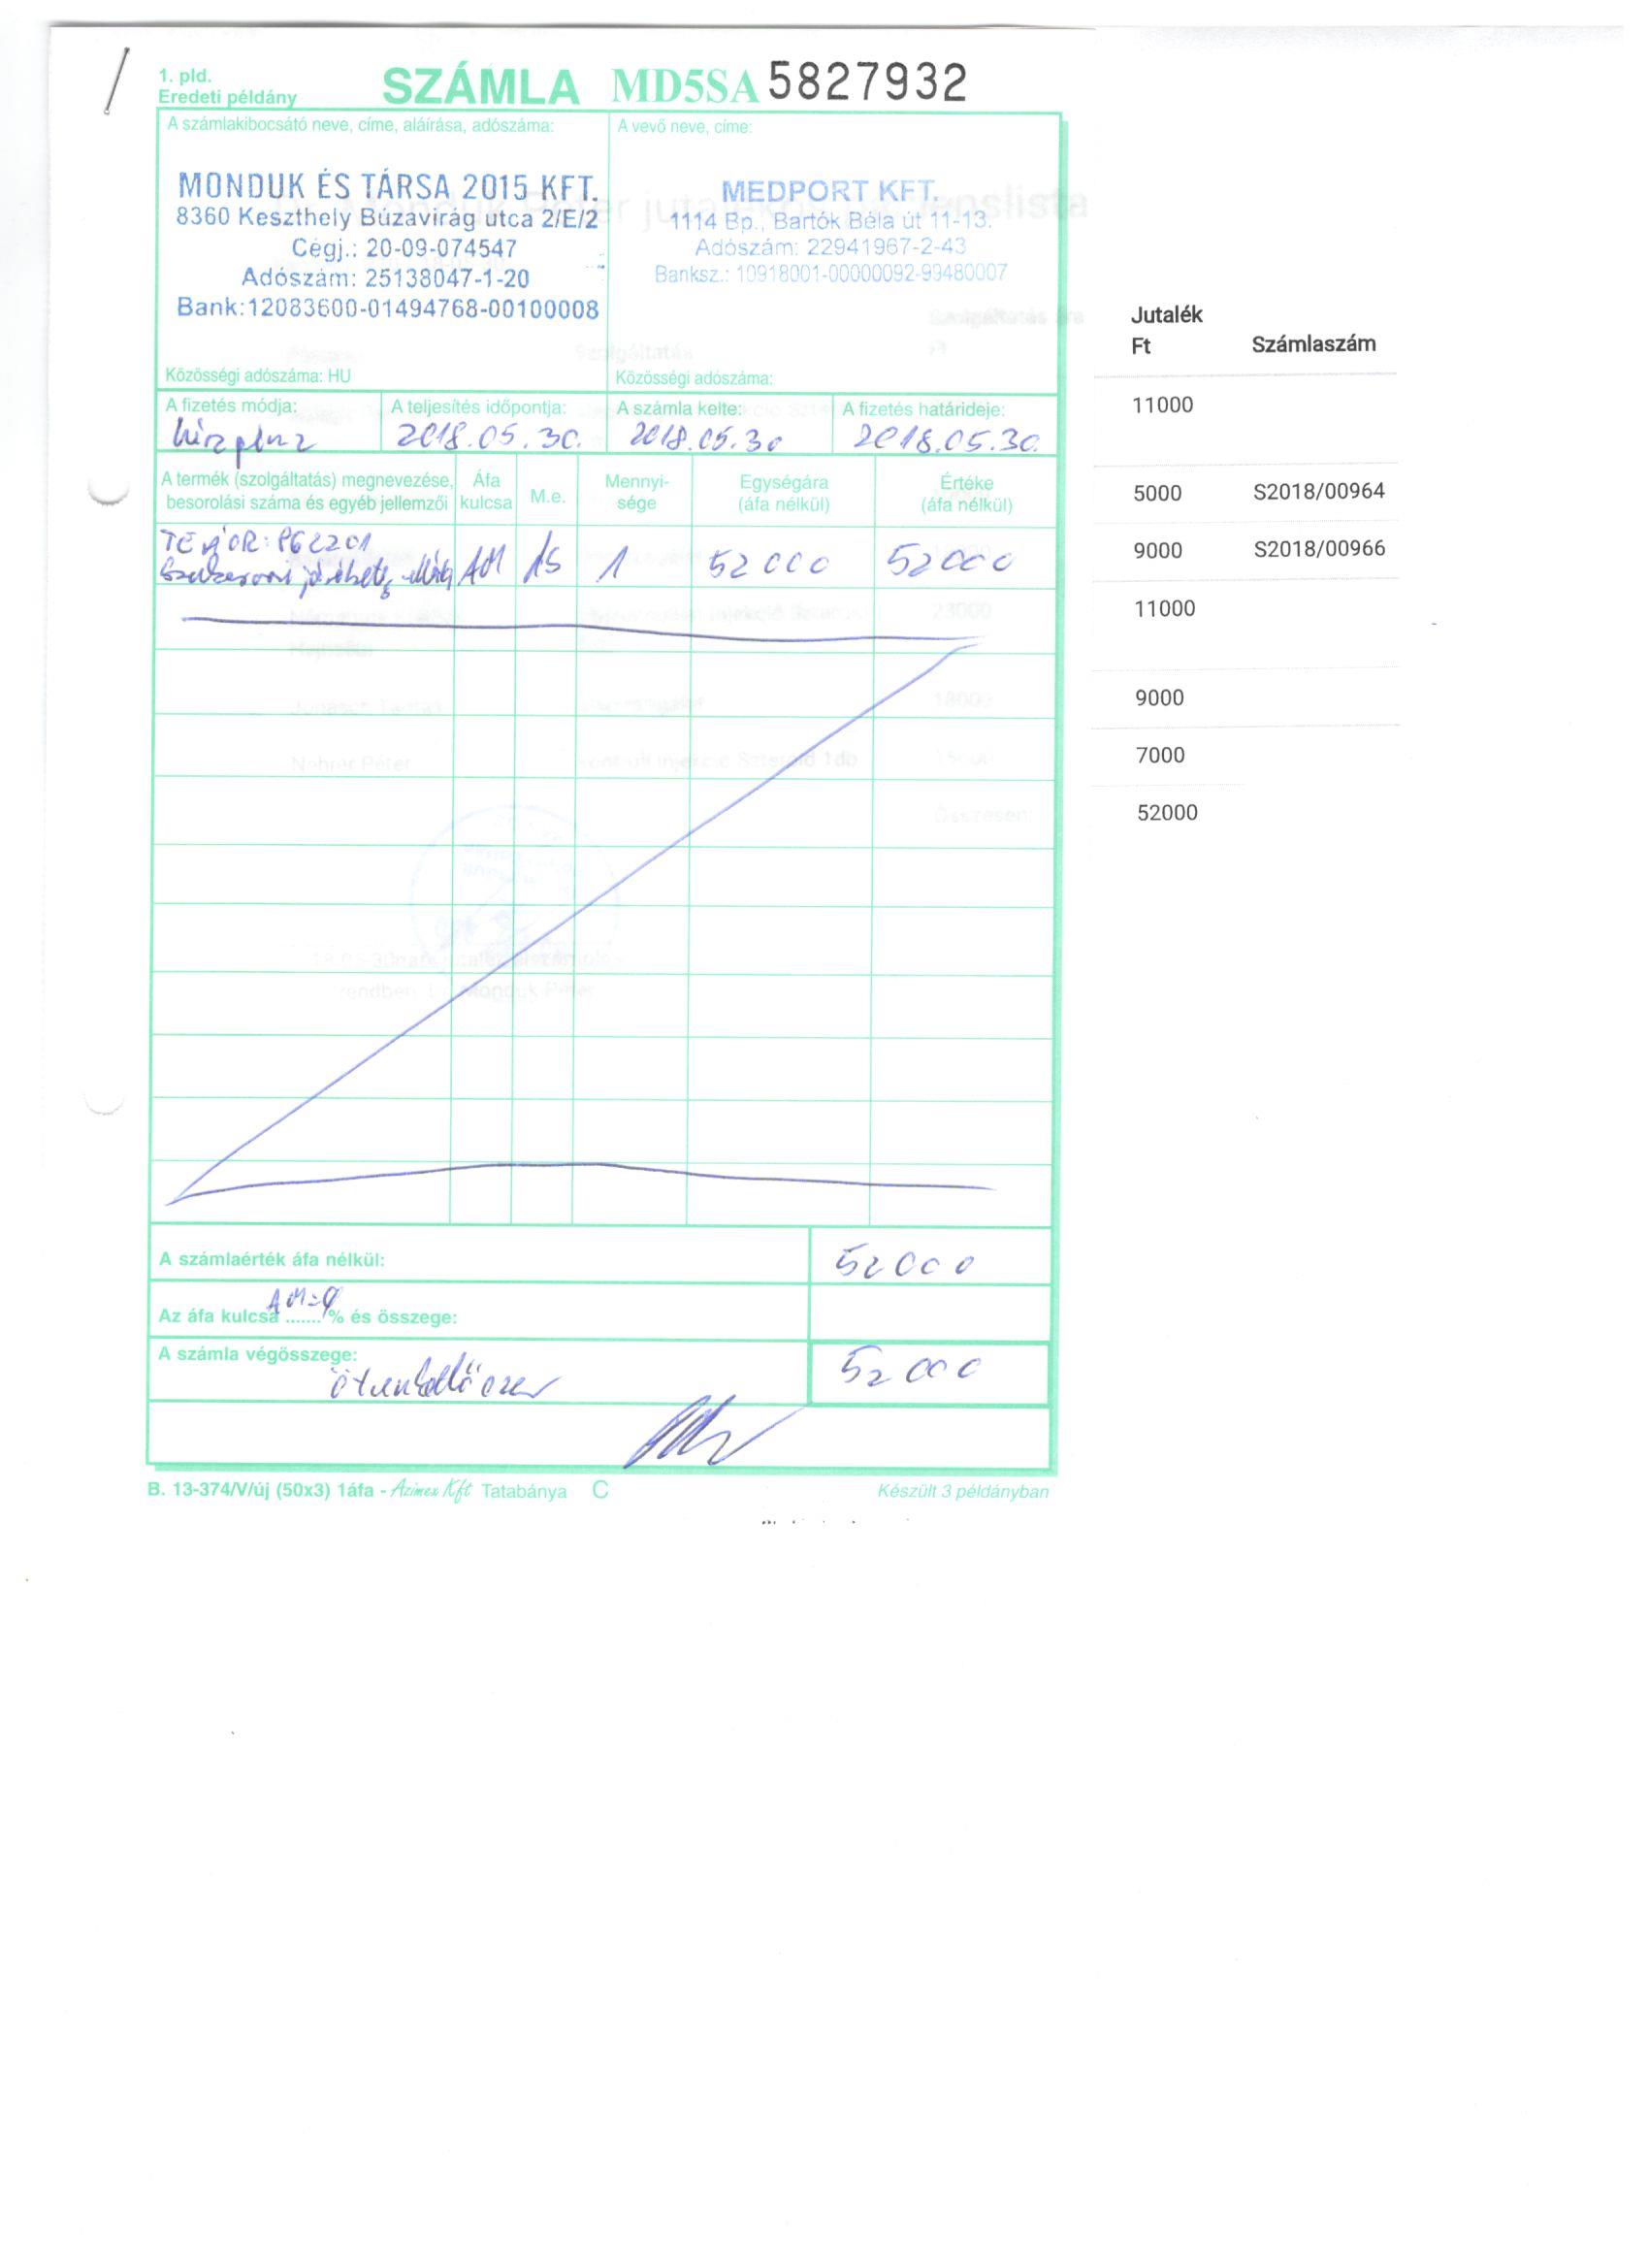 1. pld.
Eredeti példány
SZÁMLA MD5SA 5827932
A számlakibocsátó neve, címe, aláírása, adószáma:
MONDUK ÉS TÁRSA 2015 KFT.
8360 Keszthely Búzavirág utca 2/E/2
Cégj.: 20-09-074547
Adószám: 25138047-1-20
Bank:12083600-01494768-00100008
Közösségi adószáma: HU
A vevő neve, címe:
MEDPORT KFT.
1114 Bp., Bartók Béla út 11-13.
Adószám: 22941967-2-43
Banksz.: 10918001-00000092-99480007
Közösségi adószáma:
A fizetés módja:
A teljesítés időpontja:
2018.05.30.
A számla kelte:
2018.05.30
A fizetés határideje:
2018.05.30.
A termék (szolgáltatás) megnevezése,
besorolási száma és egyéb jellemzői
Áfa
kulcsa
M.e.
Mennyi-
sége
Egységára
(áfa nélkül)
Értéke
(áfa nélkül)
TEÁOR: 862201
AM 1 52000 52000
A számlaérték áfa nélkül: 52000
Az áfa kulcsa ....... % és összege:
AM=
A számla végösszege: 52000
ötvenkettőezer
B. 13-374/V/új (50x3) 1áfa - Azimex Kft Tatabánya C
Készült 3 példányban
Jutalék
Ft Számlaszám
11000
5000 S2018/00964
9000 S2018/00966
11000
9000
7000
52000